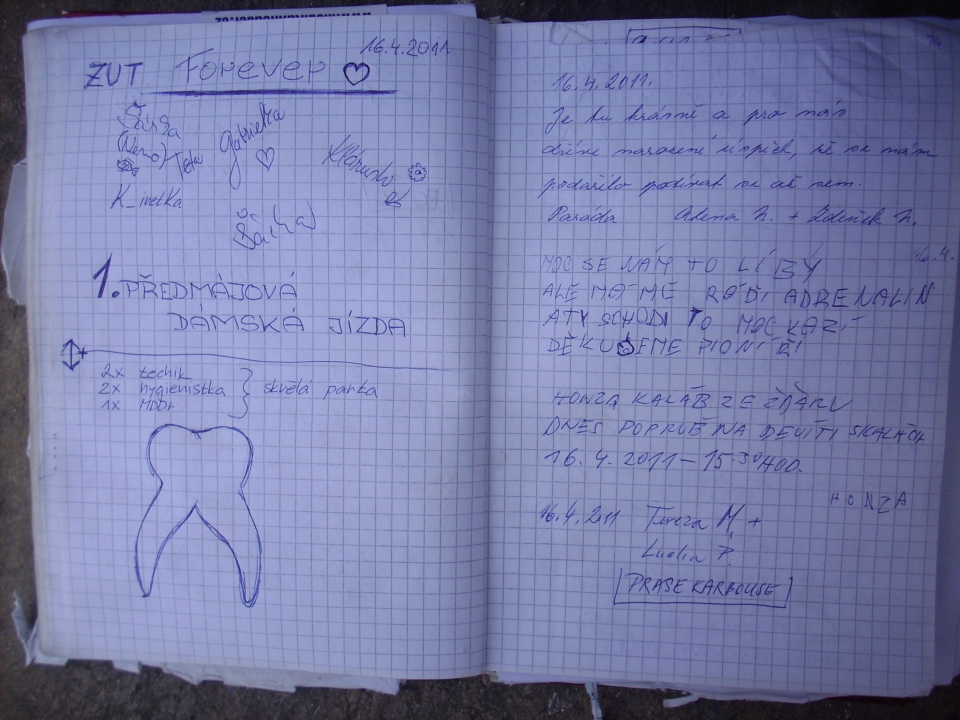 16.4.2011
ZUT Forever
Šárka
(Nemo)
Teta
Gabrielka
Klárush
K_ivetka
Šárka
1. PŘEDMÁJOVÁ
DÁMSKÁ JÍZDA
2x techik
2x hygienistka
1x MDDr
skvělá parka
16.4.2011.
Je tu krásně a pro nás
dnešní úspěch, že se nám
podařilo podívat se až sem.
Paráda Alena N. + Zdeněk N.
16.4.
MOC SE NÁM TO LÍBY
ALE MÁME RÁDI ADRENALIN
A TY SCHODI TO MOC KAZÍ
DĚKUJEME PIONÝŘI
HONZA KALÁB ZE ŽĎÁRU
DNES POPRVÉ NA DEVÍTI SKALÁCH
16.4.2011 - 15.30 HOD.
HONZA
16.4.2011 Tereza M. +
P.
PRASE KARBOUSE